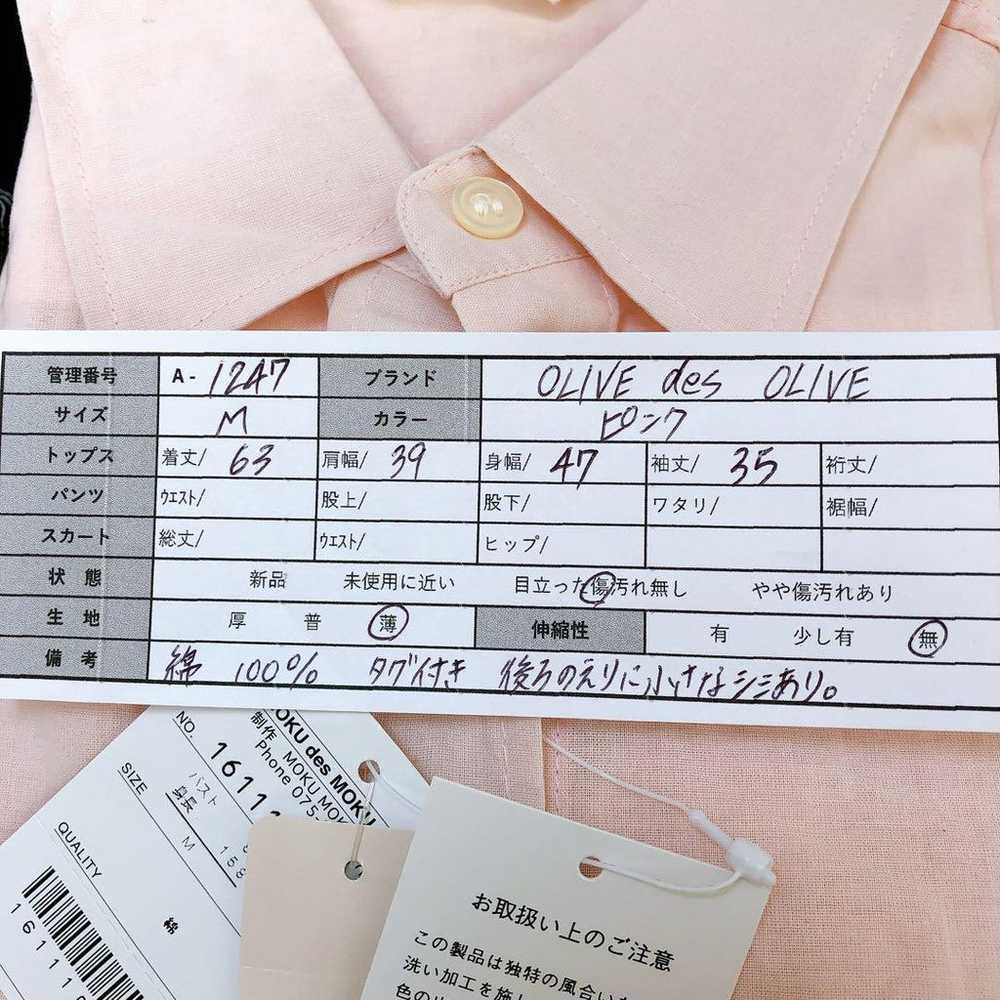 管理番号 A- 1247 ブランド OLIVE des OLIVE
サイズ M カラー ピンク
トップス 着丈/ 63 肩幅/ 39 身幅/ 47 袖丈/ 35 裄丈/
パンツ ウエスト/ 股上/ 股下/ ワタリ/ 裾幅/
スカート 総丈/ ウエスト/ ヒップ/
状態 新品 未使用に近い 目立った傷汚れ無し やや傷汚れあり
生地 厚 普 薄 伸縮性 有 少し有 無
備考 綿 100% タグ付き 後ろのえりに小さなシミあり。
OKU des MOKU
制作 MOKU MOK
Phone 075-
NO. 1611
SIZE バスト
身長 M 158
QUALITY 綿
16110
お取扱い上のご注意
この製品は独特の風合い
洗い加工を施し
色の